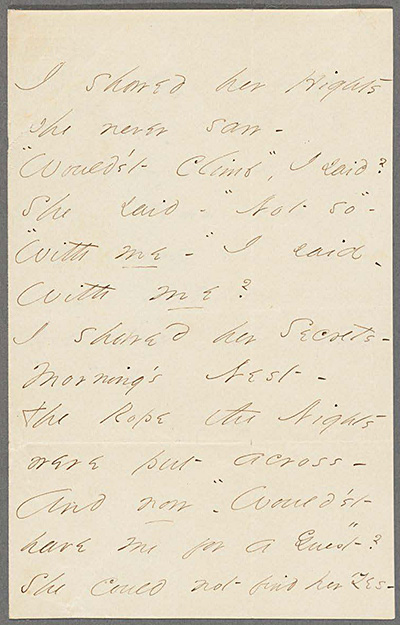 I showed her Hights
she never saw -
"Would'st Climb", I said?
She said - "Not so" -
"With me -" I said -
With me?
I showed her Secrets -
Morning's Nest -
The Rope the Nights
were put across -
And now - "Would'st
have me for a Guest"?
She could not find her Yes -